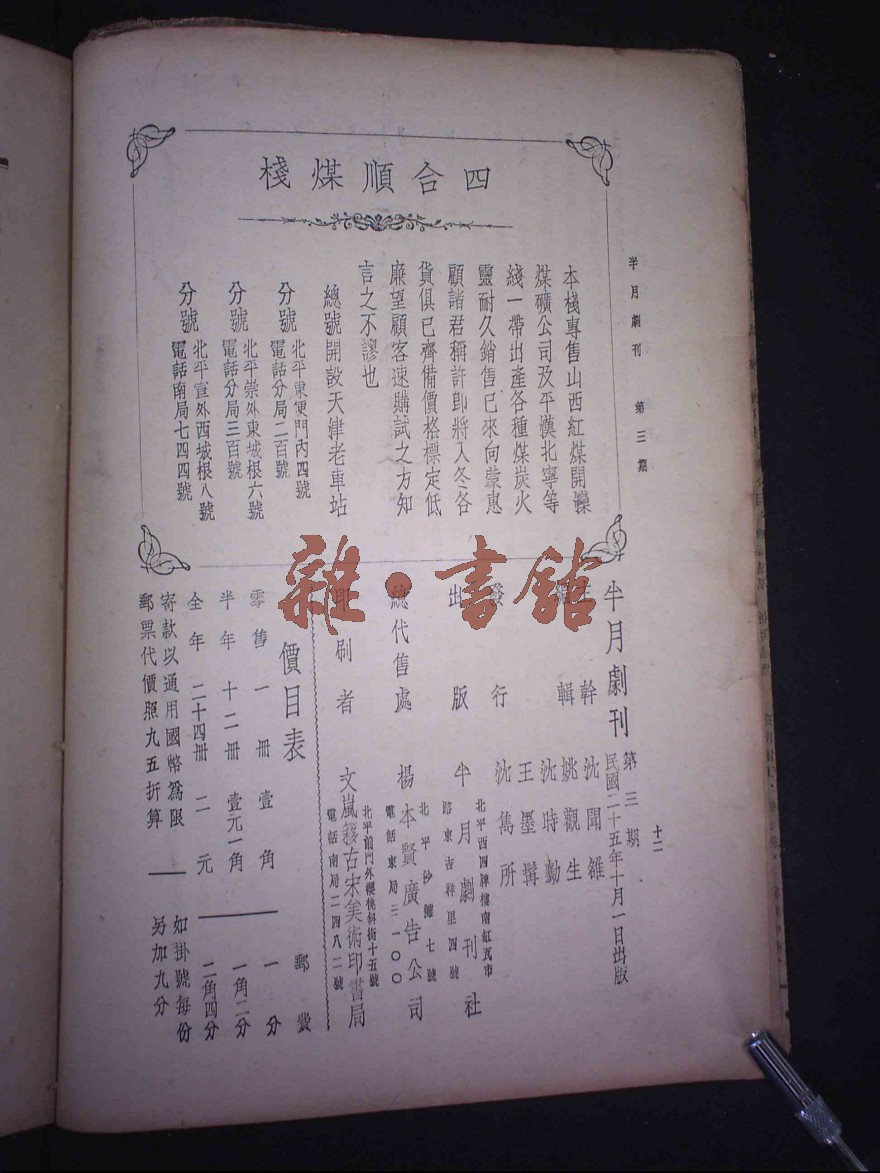 半月劇刊　第三期
十二
四合順煤棧
本棧專售山西紅煤開灤
煤礦公司及平漢北寧等
綫一帶出產各種煤炭火
靈耐久銷售已來向蒙惠
顧諸君稱許即將入冬各
貨俱已齊備價格標定低
廉望顧客速購試之方知
言之不謬也
總號開設天津老車站
分號　北平東便門內四號
電話分局二百號
分號　北平崇外東城根六號
電話分局三百號
分號　北平宣外西城根八號
電話南局七四四號
半月劇刊　第三期
民國二十五年十月一日出版
幹　沈閏雒
輯　姚觀生
沈時勳
王墨髯
發行　沈萬所
出版　半月劇刊社
北平西四牌樓南缸瓦市
路東吉祥里四號
總代售處　楊本賢廣告公司
北平沙灘七號
電話東局三一〇〇
印刷者　文嵐簃古宋美術印書局
北平前門外櫻桃斜街十五號
電話南局二四八二號
價目表　郵費
零售　一冊　壹角　一分
半年　十二冊　壹元一角　一角二分
全年　二十四冊　二元　二角四分
寄款以通用國幣為限
郵票代價照九五折算
如掛號每份
另加九分
雜·書館